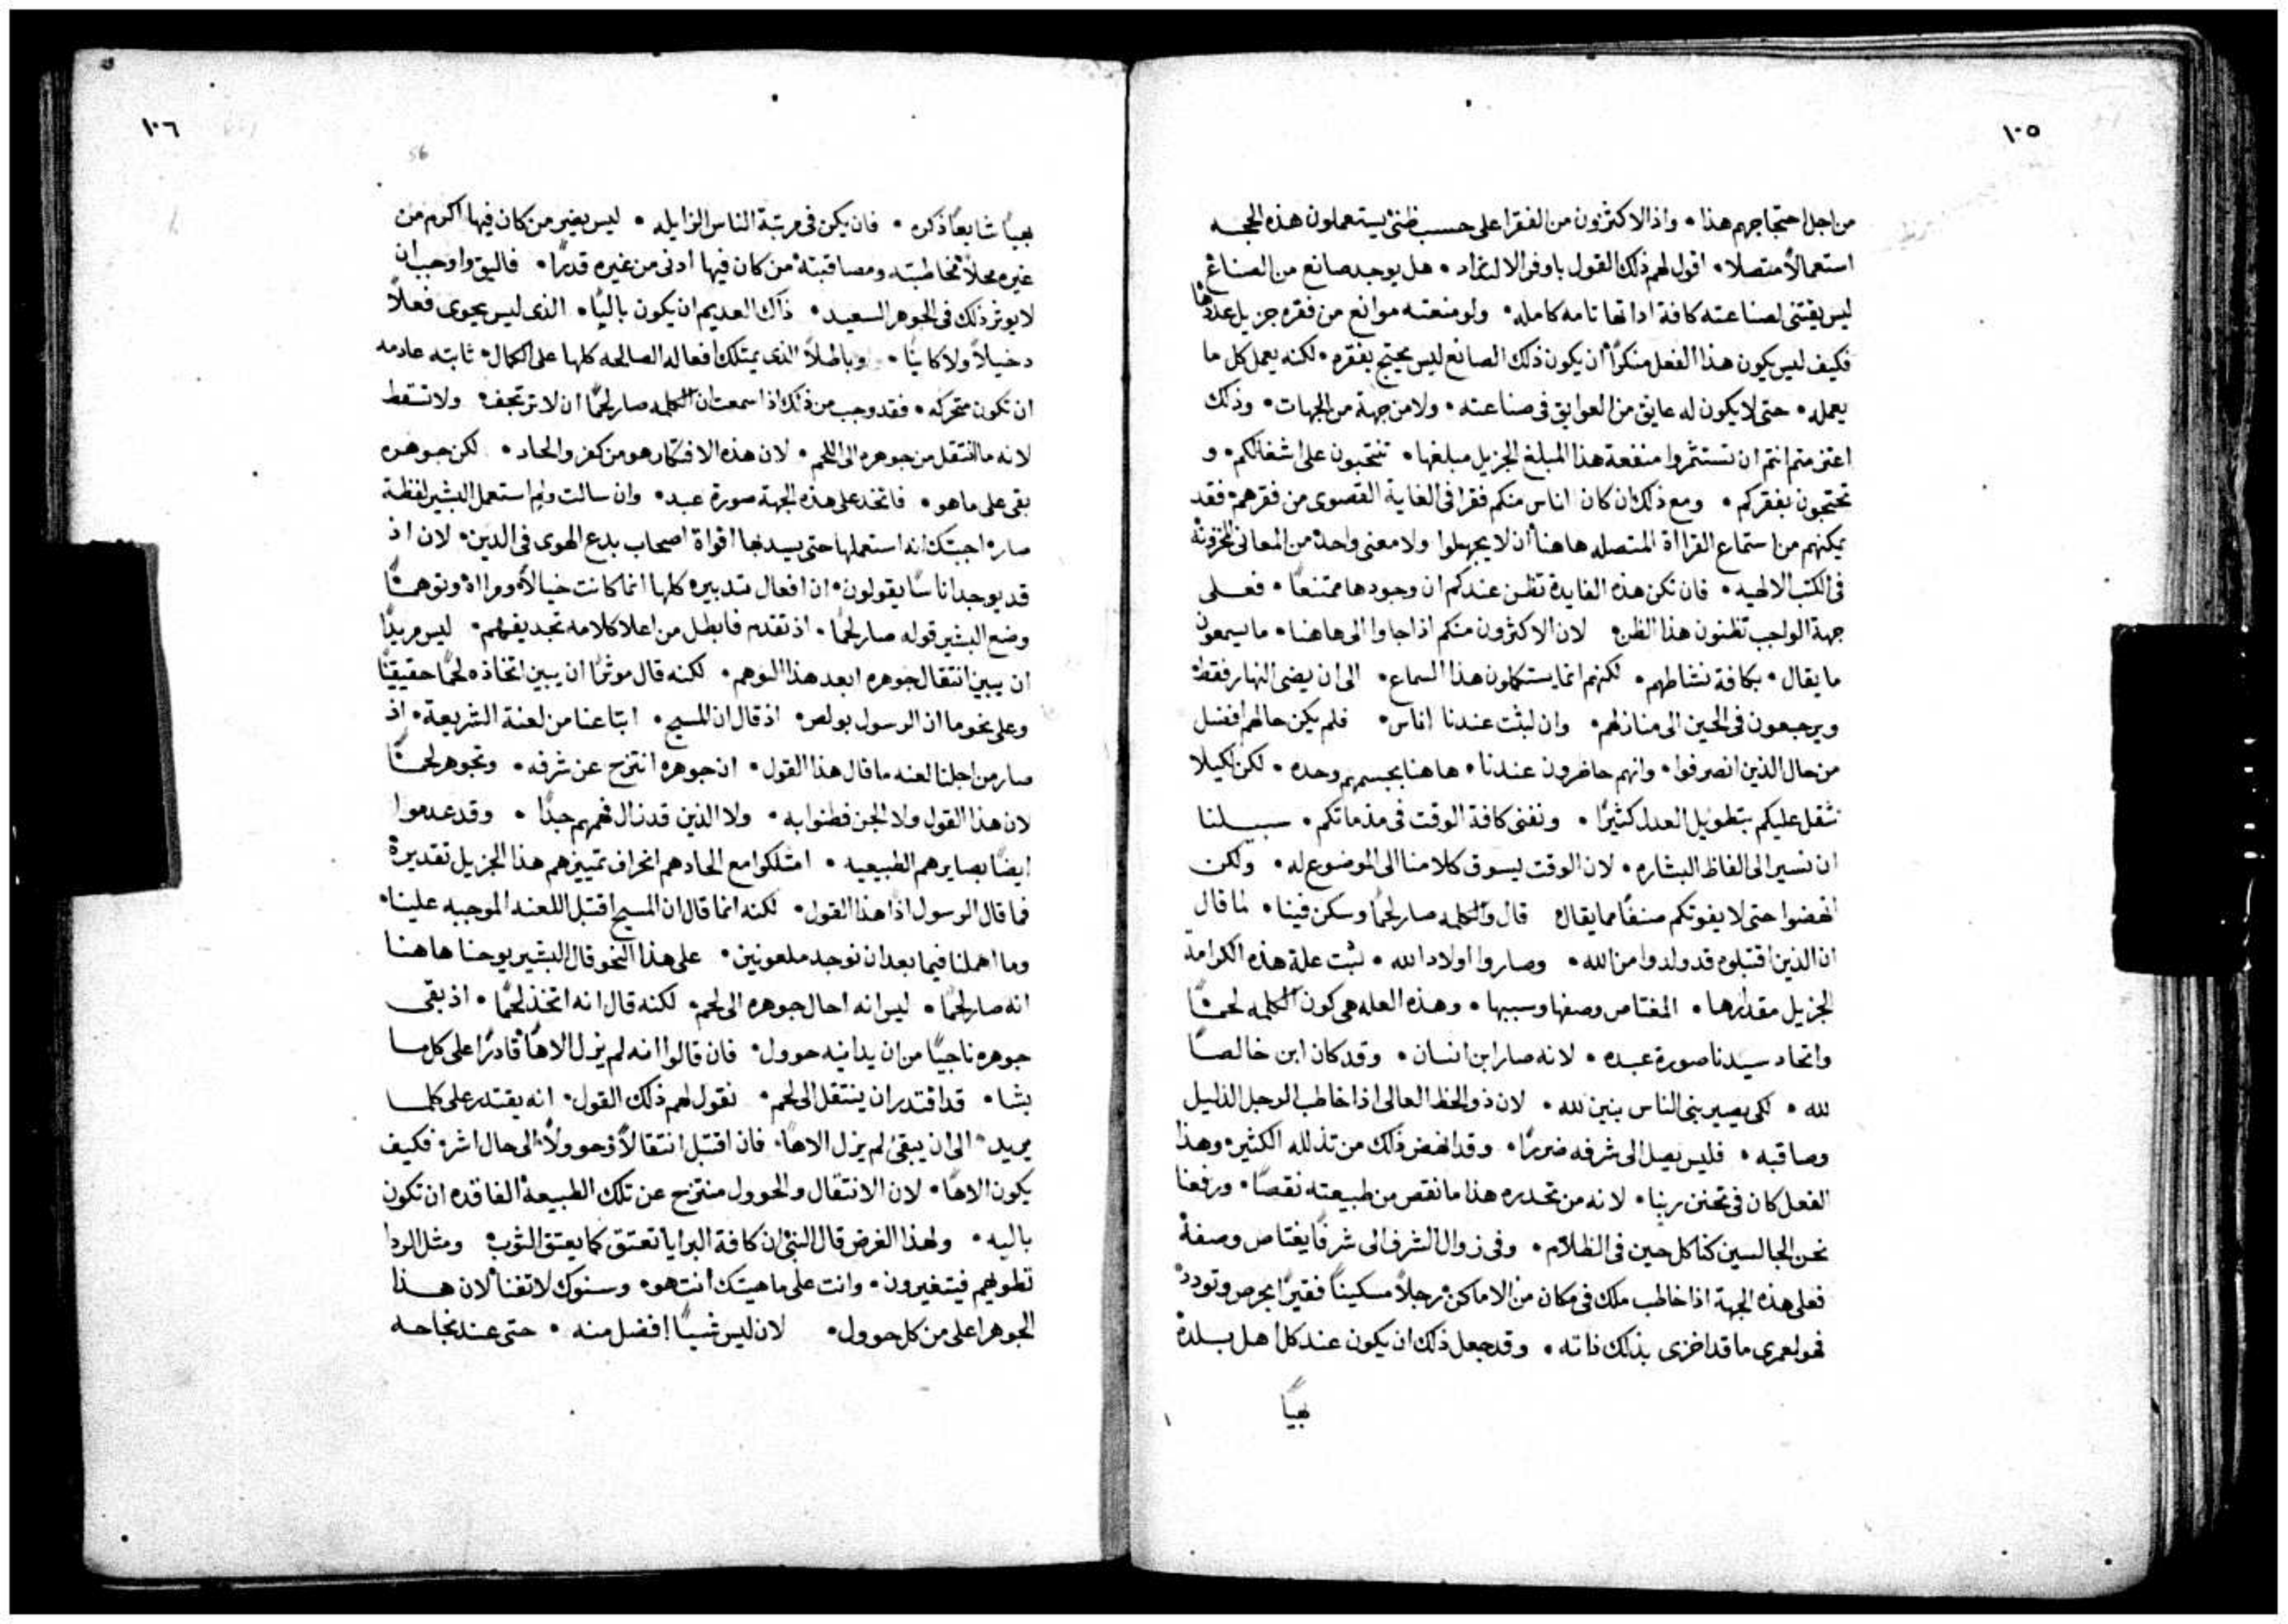 ١٠٥
من اجل احتجاجهم هذا • واذ الاكثرون من الفقرا على حسب ظني يستعملون هذه الحجه
استعمالاً متصلاً • اقول لهم ذلك القول باوفر الالتذاد • هل يوجد صانع من الصناع
ليس يقتني لصناعته كافة اداتها تامه كامله • ولو منعته موانع من فقره جزيل عددها
فكيف ليس يكون هذا الفعل منكراً ان يكون ذلك الصانع ليس يحتج بفقره • لكنه يعمل كل ما
يعمله • حتى لا يكون له عايق من العوايق في صناعته • ولا من جهة من الجهات • وذلك
اعتزمتم انتم ان تستثمروا منفعة هذا المبلغ الجزيل مبلغها • تنتحبون على اشغالكم • و
تحتجون بفقركم • ومع ذلك ان كان اناس منكم فقرا في الغاية القصوى من فقرهم • فقد
يمكنهم من استماع القرااة المتصله هاهنا ان لا يجهلوا ولا معنى واحد من المعاني المخزونة
في الكتب الالهيه • فان تكن هذه الفايدة تظن عندكم ان وجودها ممتنعاً • فعلى
جهة الواجب تظنون هذا الظن • لان الاكثرون منكم اذا جاوا الى هاهنا • ما يسمعون
ما يقال • بكافة نشاطهم • لكنهم انما يستكملون هذا السماع • الى ان يضى النهار فقط •
ويرجعون في الحين الى منازلهم • وان لبثت عندنا اناس • فلم يكن حالهم افضل
من حال الذين انصرفوا • وانهم حاضرون عندنا • هاهنا بجسمهم وحده • لكن لكيلا
نثقل عليكم بتطويل العدل كثيراً • ونفني كافة الوقت في مذماتكم • سبيلنا
ان نسير الى الفاظ البشاره • لان الوقت يسوق كلامنا الى الموضوع له • ولكن
انهضوا حتى لا يفوتكم صنفاً مما يقال • قال والكلمه صار لحماً وسكن فينا • لما قال
ان الذين اقتبلوه قد ولدوا من الله • وصاروا اولاد الله • ثبت علة هذه الكرامه
الجزيل مقدارها • المغتاص وصفها وسببها • وهذه العله هي كون الكلمه لحماً
واتحاد سيدنا صورة عبده • لانه صار ابن انسان • وقد كان ابن خالصاً
لله • لكي يصير بني الناس بنين لله • لان ذو الحظ العالي اذا خاطب الرجل الذليل
وصاقبه • فليس يصل الى شرفه ضرراً • وقد انهض ذلك من تذلله الكثير • وهذا
الفعل كان في تحنن ربنا • لانه من تحدره هذا ما نقص من طبيعته نقصاً • ورفعنا
نحن الجالسين كنا كل حين في الظلام • وفي زوال الشرف الى شرفاً يغتاص وصفة
فعلى هذه الجهة اذا خاطب ملك في مكان من الاماكن • رجلاً مسكيناً فقيراً بحرص وتودد •
فهو لعمري ما قد اخزى بذلك ذاته • وقد جعل ذلك ان يكون عند كل اهل بلدة
بهياً
١٠٦
56
بهياً شايعاً ذكره • فان يكن في مرتبة الناس الزايله • ليس يضر من كان فيها اكرم من
غيره محلاً مخاطبته ومصاقبته من كان فيها ادنى من غيره قدراً • فاليق واوجب ان
لا يوثر ذلك في الجوهر السعيد • ذاك العديم ان يكون بالياً • الذي ليس يحوى فعلاً
دخيلاً ولا كايناً • وباطلاً الذي يمتلك افعاله الصالحه كلها على الكمال • ثابته عادمه
ان تكون متحركه • فقد وجب من ذلك اذا سمعت ان الكلمه صار لحماً ان لا ترتجف • ولا تسقط
لانه ما انتقل من جوهره الى اللحم • لان هذه الافتكار هو من كفر والحاد • لكن جوهره
بقى على ما هو • فاتخذ على هذه الجهة صورة عبد • وان سالت ولم استعمل البشير لفظة
صار • اجبتك انه استعملها حتى يسد بها افواة اصحاب بدع الهوى في الدين • لان اذ
قد يوجد اناسا يقولون • ان افعال تدبيره كلها انما كانت خيالاً ومرااة وتوهماً
وضع البشير قوله صار لحماً • اذ تقدم فابطل من اعلا كلامه تجديفهم • ليس مريداً
ان يبين انتقال جوهره ابعد هذا التوهم • لكنه قال موثراً ان يبين اتخاذه لحماً حقيقياً
وعلى نحو ما ان الرسول بولص • اذ قال ان المسيح • ابتاعنا من لعنة الشريعة • اذ
صار من اجلنا لعنه ما قال هذا القول • ان جوهره انتزح عن شرفه • وتجوهر لحماً
لان هذا القول ولا الجن فطنوا به • ولا الذين قد نال فهمهم جداً • وقد عدموا
ايضاً بصايرهم الطبيعيه • امتلكوا مع الحادهم انحراف تمييزهم هذا الجزيل تقديرة
فما قال الرسول اذا هذا القول • لكنه انما قال ان المسيح اقتبل اللعنه الموجبه علينا •
وما اهملنا فيما بعد ان نوجد ملعونين • على هذا النحو قال البشير يوحنا هاهنا
انه صار لحماً • ليس انه احال جوهره الى لحم • لكنه قال انه اتخذ لحماً • اذ بقى
جوهره ناجياً من ان يدانيه حوول • فان قالوا انه لم يزل الاهاً قادراً على كل ما
يشا • قد اقتدر ان ينتقل الى لحم • نقول لهم ذلك القول • انه يقتدر على كلما
يريد • الى ان يبقى لم يزل الاهاً • فان اقتبل انتقالاً وحوولاً الى حال اشر • فكيف
يكون الاهاً • لان الانتقال والحوول منتزح عن تلك الطبيعة الفاقده ان تكون
باليه • ولهذا الغرض قال النبي ان كافة البرايا تعتق كما يعتق الثوب • ومثل الردا
تطويهم فيتغيرون • وانت على ماهيتك انت هو • وسنوك لا تفنا لان هذا
الجوهر اعلى من كل حوول • لان ليس شيئاً افضل منه • حتى عند نجاحه